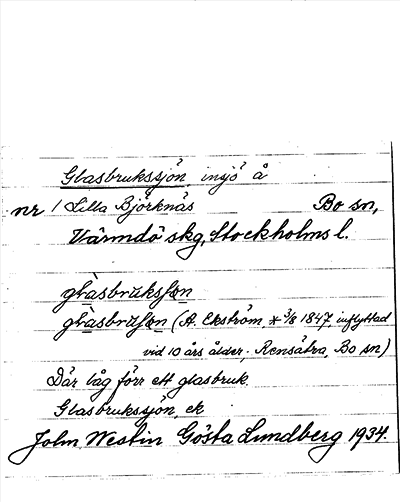 Glasbrukssjön, insjö å
nr 1 Lilla Björknäs Bo sn,
Värmdö skg, Stockholms l.
glàsbrùksſœn
glàsbrùſœn (A. Ekström, * 3/8 1847, inflyttad
vid 10 års ålder, Rensätra, Bo sn)
Där låg förr ett glasbruk.
Glasbrukssjön, ek
John Westin Gösta Lundberg 1934.